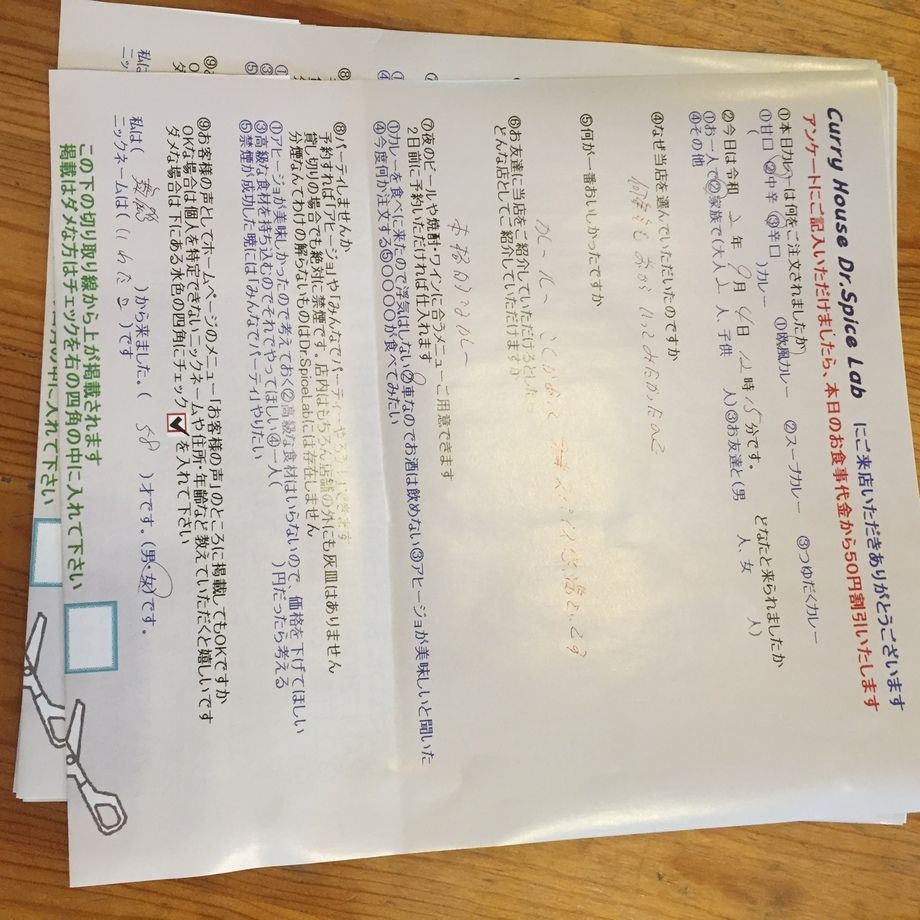 Curry House Dr.Spice Lab にご来店いただきありがとうございます
アンケートにご記入いただけましたら、本日のお食事代金から50円割引いたします
①本日カレーは何をご注文されましたか ①欧風カレー ②スープカレー ③つゆだくカレー
①甘口 ②中辛 ③辛口
( )カレー
②今日は令和 2 年 9月 4日 12時 15分です。 どなたと来られましたか
①お一人で ②家族で(大人 2 人、子供 人) ③お友達と(男 人、女 人)
④その他
④なぜ当店を選んでいただいたのですか
⑤何が一番おいしかったですか
⑥お友達に当店をご紹介していただけるとしたら
どんな店としてご紹介していただけますか
⑦夜のビールや焼酎・ワインに合うメニューご用意できます
2日前に予約いただければ仕入れます
①カレーを食べに来たので浮気はしない ②車なのでお酒は飲めない ③アヒージョが美味しいと聞いた
④今度何か注文する ⑤〇〇〇〇が食べてみたい
⑧パーティしませんか
予約すれば「アヒージョ」や「みんなでパーティーやろう」できます
貸し切りの場合でも絶対に禁煙です。店内はもちろん店舗の外にも灰皿はありません
分煙なんてわけの解らないものはDr.SpiceLabには存在しません
①アヒージョが美味しかったので考えておく ②高級な食材はいらないので、価格を下げてほしい
③高級な食材を持ち込むのでそれでやってほしい ④一人( )円だったら考える
⑤禁煙が成功した暁には「みんなでパーティ」やりたい
⑨お客様の声としてホームページのメニュー「お客様の声」のところに掲載してもOKですか
OKな場合は個人を特定できないニックネームや住所・年齢など教えていただくと嬉しいです
ダメな場合は下にある水色の四角にチェック を入れて下さい
私は( )から来ました。( 58 )才です。(男・女)です。
ニックネームは( )です
この下の切り取り線から上が掲載されます
掲載はダメな方はチェックを右の四角の中に入れて下さい